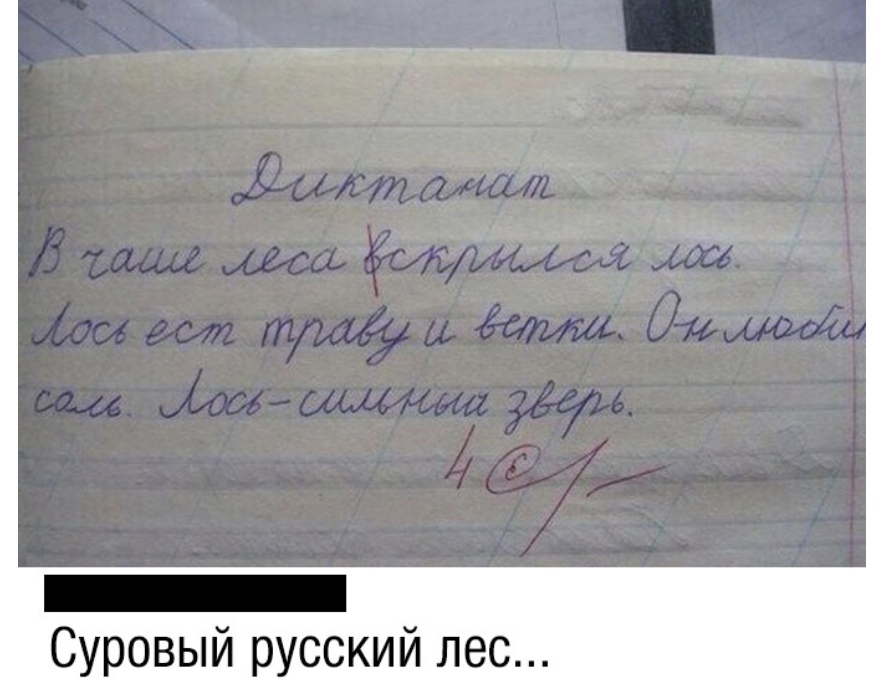 Диктанат
В чаше леса вскрылся лось.
Лось ест траву и ветки. Он люби
соль. Лось-сильный зверь.
4
Суровый русский лес...